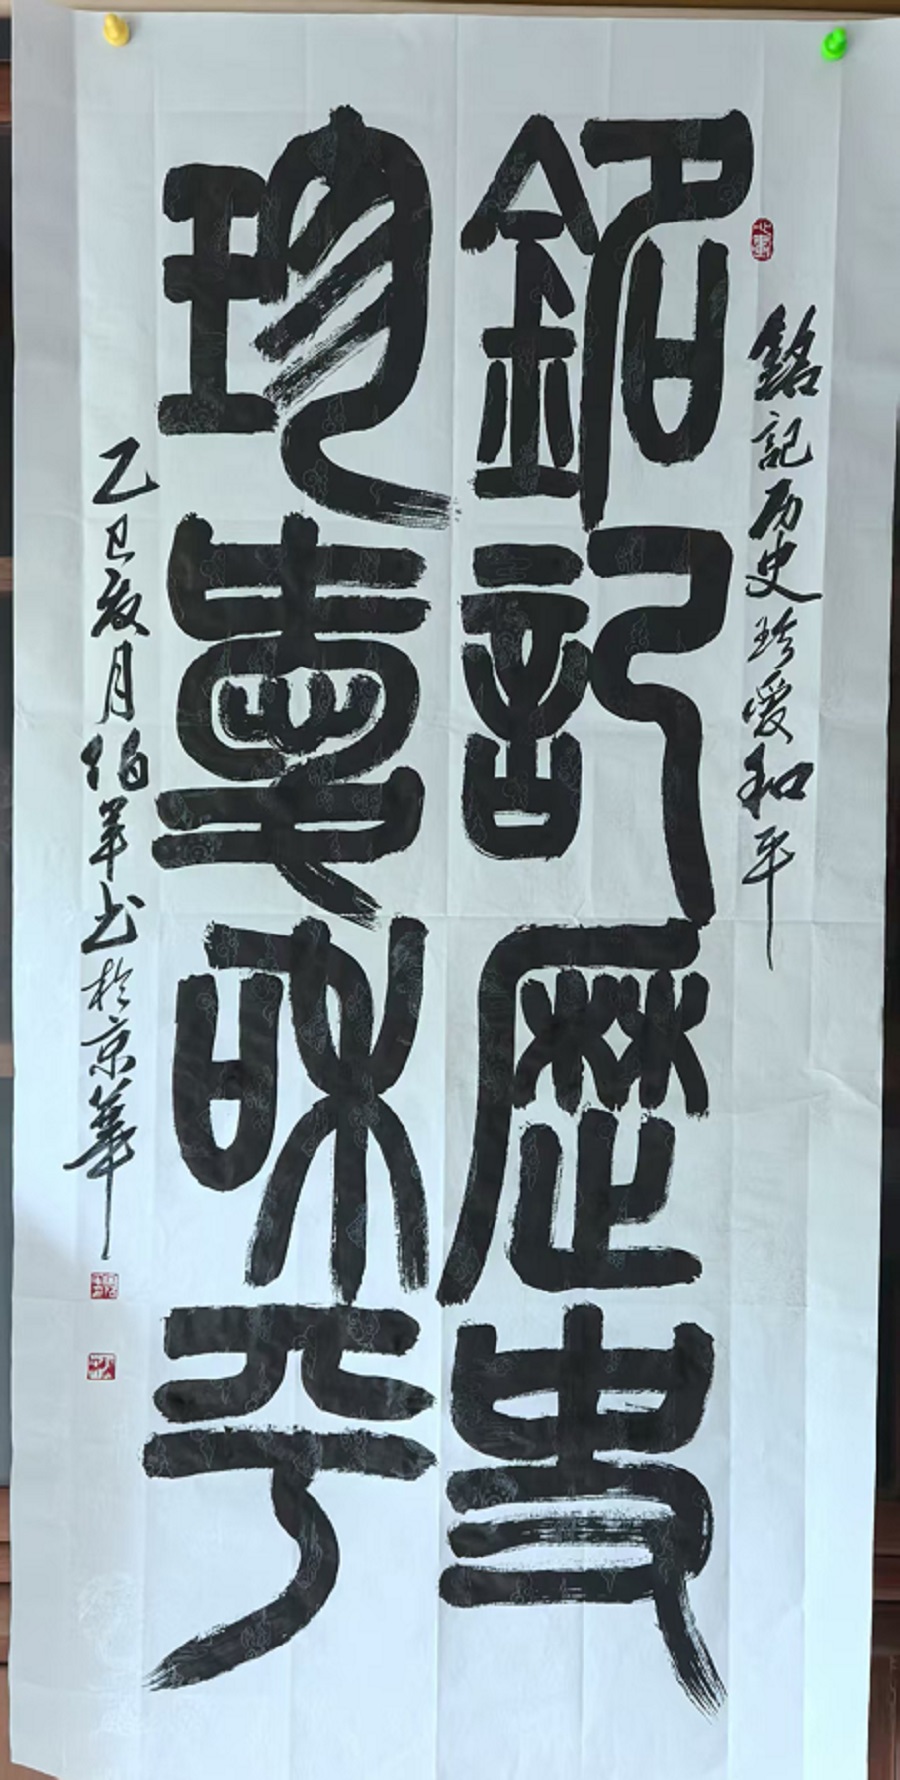 銘記历史珍愛和平
銘記歷史
珍愛和平
乙巳夏月伯羊书於京華